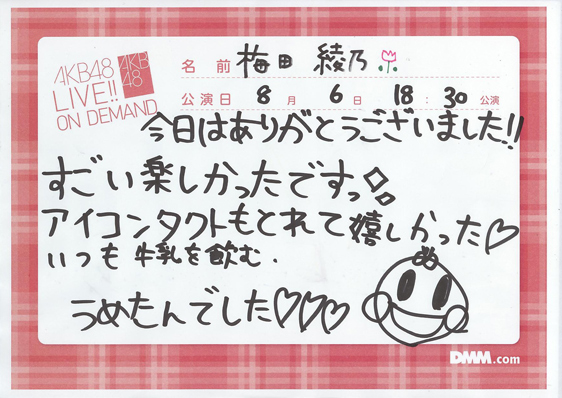 AKB48
LIVE!!
ON DEMAND
AKB
48
名前 梅田 綾乃
公演日 8月 6日 18:30 公演
今日はありがとうございました!!
すごい楽しかったですっ
アイコンタクトもとれて嬉しかった♡
いつも牛乳を飲む.
うめたんでした♡♡♡
DMM.com